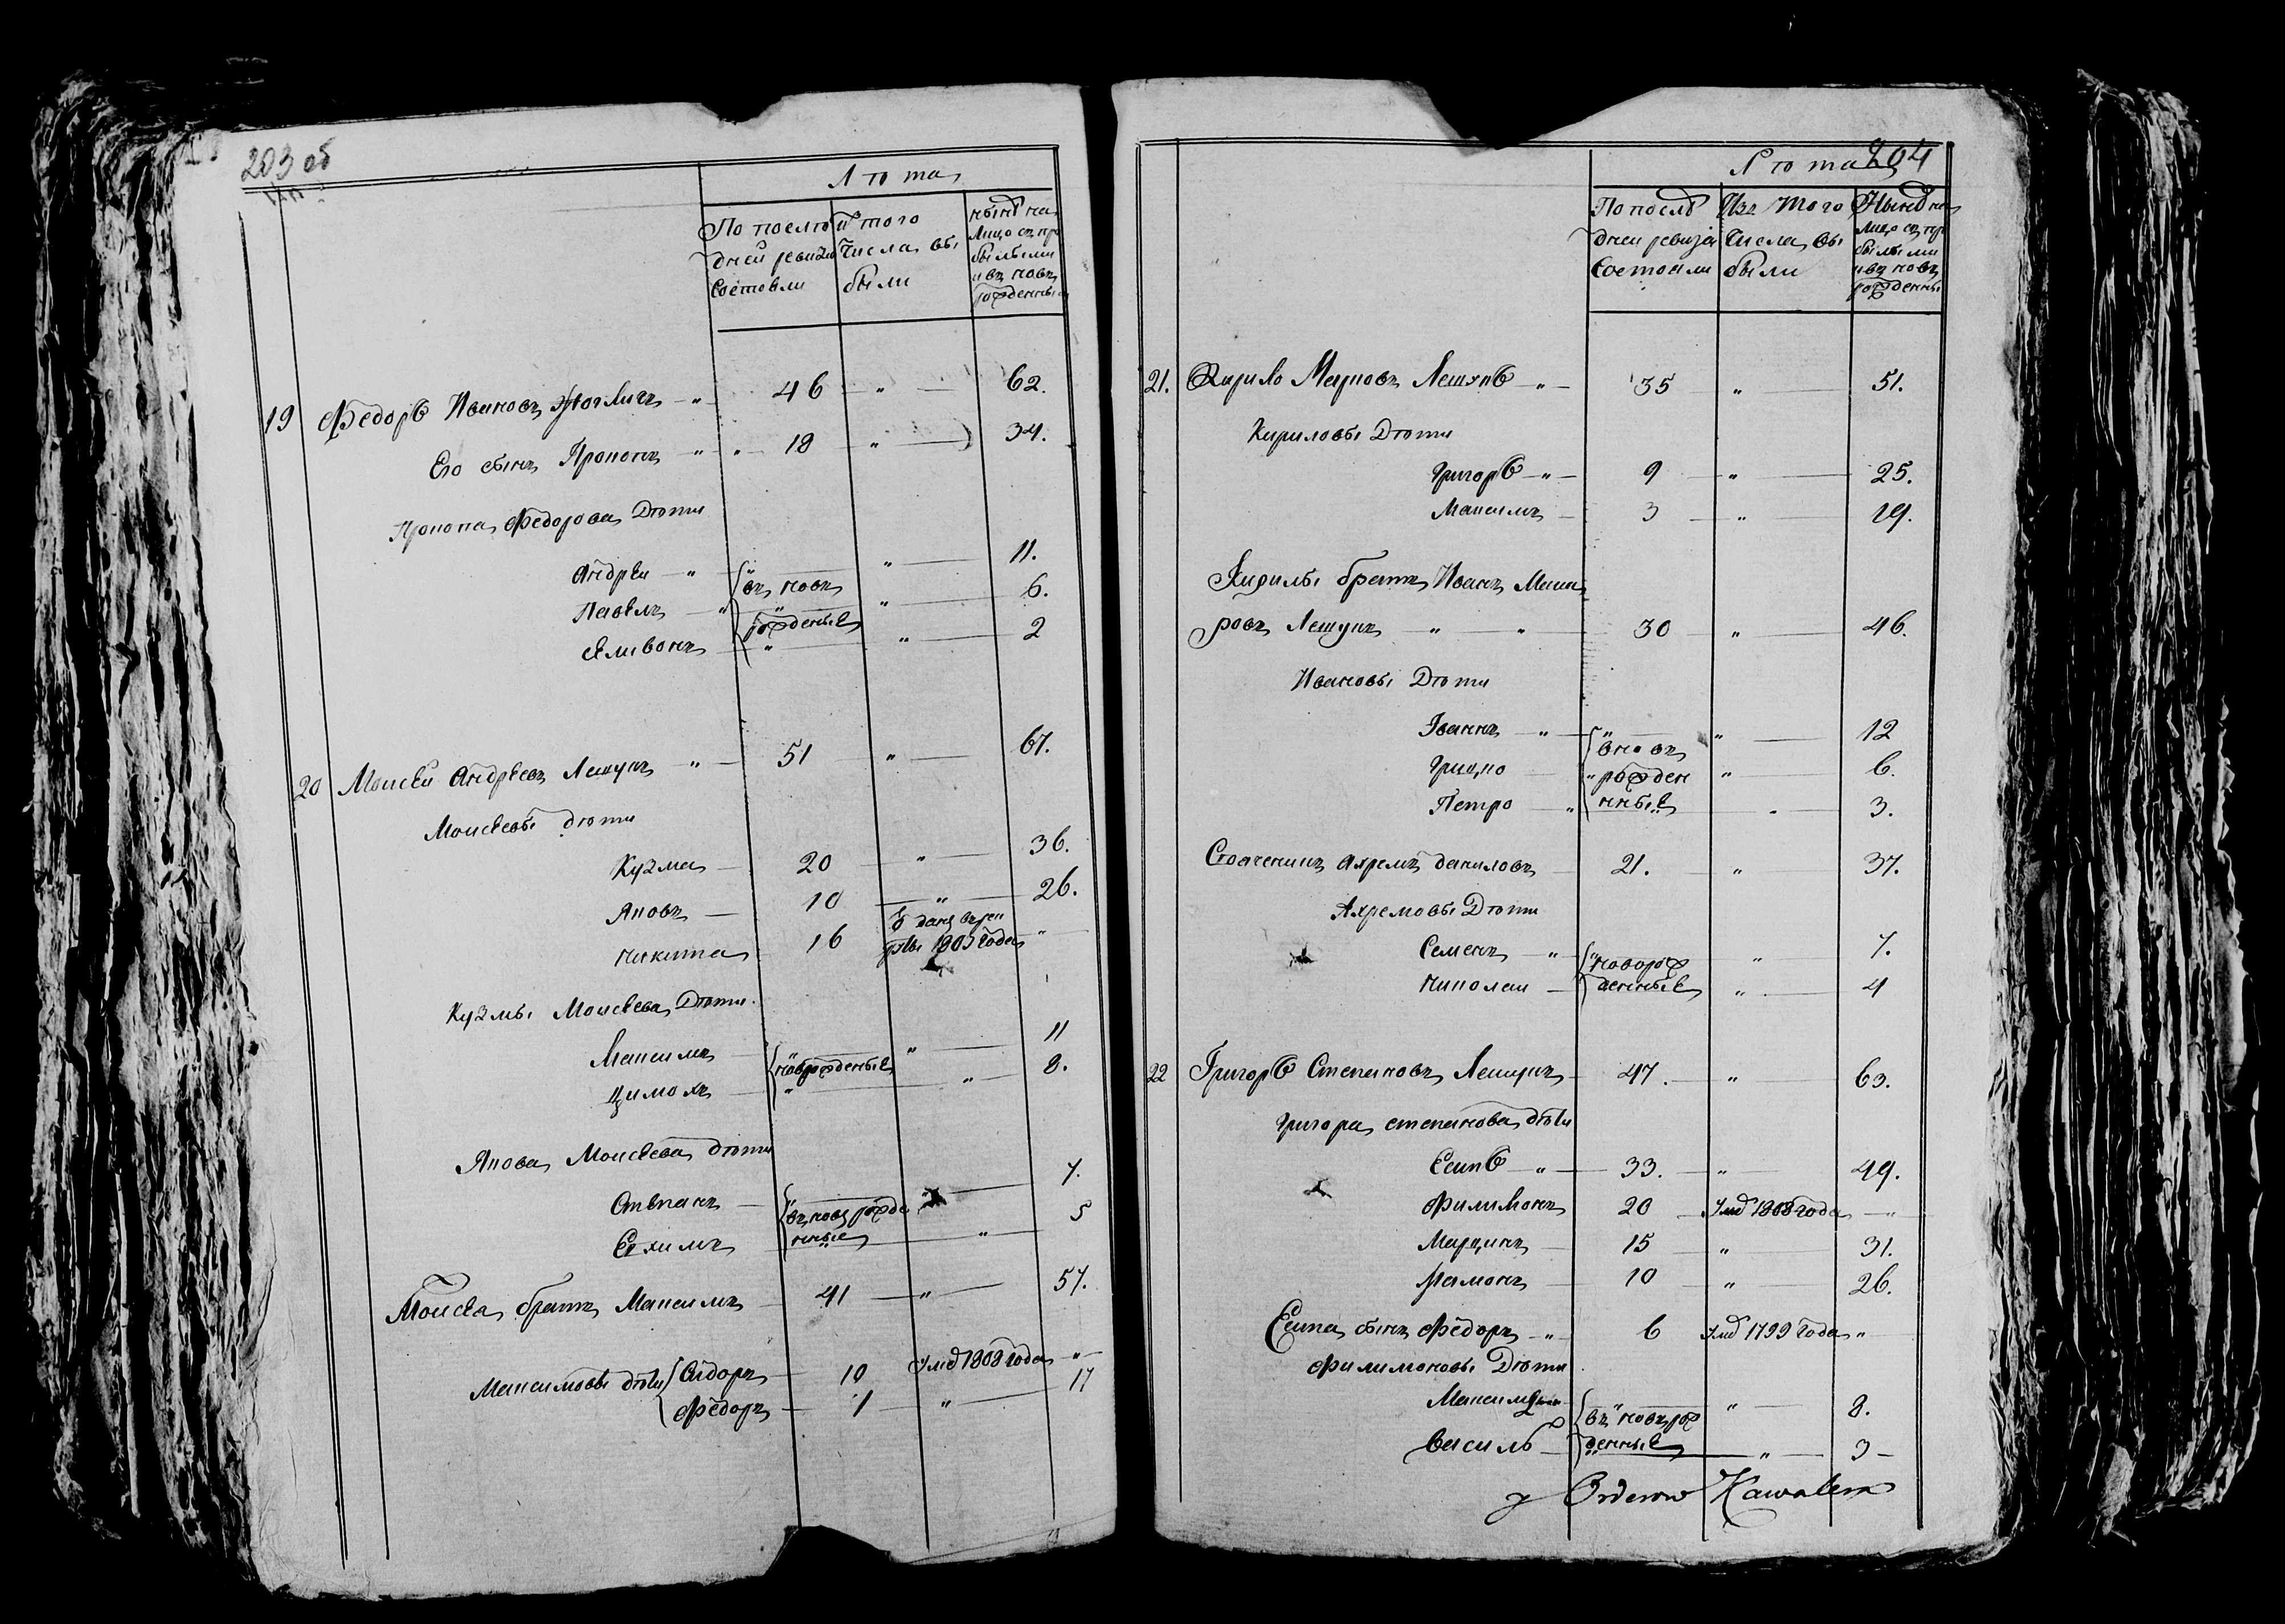 203 об
Лѣта
По послѣ
дней ревизіи
Состояли
из того
Числа вы
были
нынѣ на
Лицо съ при
былыми
и въ новъ
рожденны
19 Ѳедоръ Ивановъ 46 " 62.
Его сынъ Прокопъ " 18 " 34.
Прокопа Ѳедорова Дѣти
Андрей " въ новъ " 11.
Павелъ " рожденные " 6.
Еливонъ " " 2
20 Моисей Андреевъ Лешукъ " 51 " 67.
Моисеевы дѣти
Кузма 20 " 36.
Яковъ 10 " 26.
Никита 16 Ѿданъ в рек
руты 1803 года "
Кузмы Моисеева Дѣти
Максимъ новорожденные " 11
Цимохъ " " 8.
Якова Моисеева дѣти
Степанъ въ новъ рожде " 7.
Ехимъ нные " 5
Моисея братъ Максимъ 41 " 57.
Максимовы дѣти Сидоръ 10 Умѣ 1808 года "
Ѳедоръ 1 " 17
204
Лѣта
По послѣ
дней ревизіи
Состояли
Изъ того
Числа вы
были
Нынѣ на
Лицо съ при
былыми
и въ новъ
рожденны
21. Кирило Марковъ Лешукъ " 35 " 51.
Кириловы Дѣти
Григоръ " 9 " 25.
Максимъ 3 " 19.
Кирилы братъ Иванъ Мака
ровъ Лешукъ " " 30 " 46.
Ивановы Дѣти
Іваннъ " вновъ " 12
Грицко " рожден " 6.
Петро " нные " 3.
Стояченинъ Ахремъ Даниловъ 21. " 37.
Ахремовы Дѣти
Семенъ " новорож " 7.
Николай денные " 4
22 Григоръ Степановъ Лешукъ 47. " 63.
Григора степанова дѣти
Есипъ " 33. " 49.
Филимонъ 20 Умѣ 1808 года "
Марцинъ 15 " 31.
Мамонъ 10 " 26.
Есипа сынъ Ѳедоръ " 6 Умѣ 1799 года "
Филимоновы Дѣти
Максимъ въ новъ рож " 8.
Василь денные " 3
y Orderow Kawaler